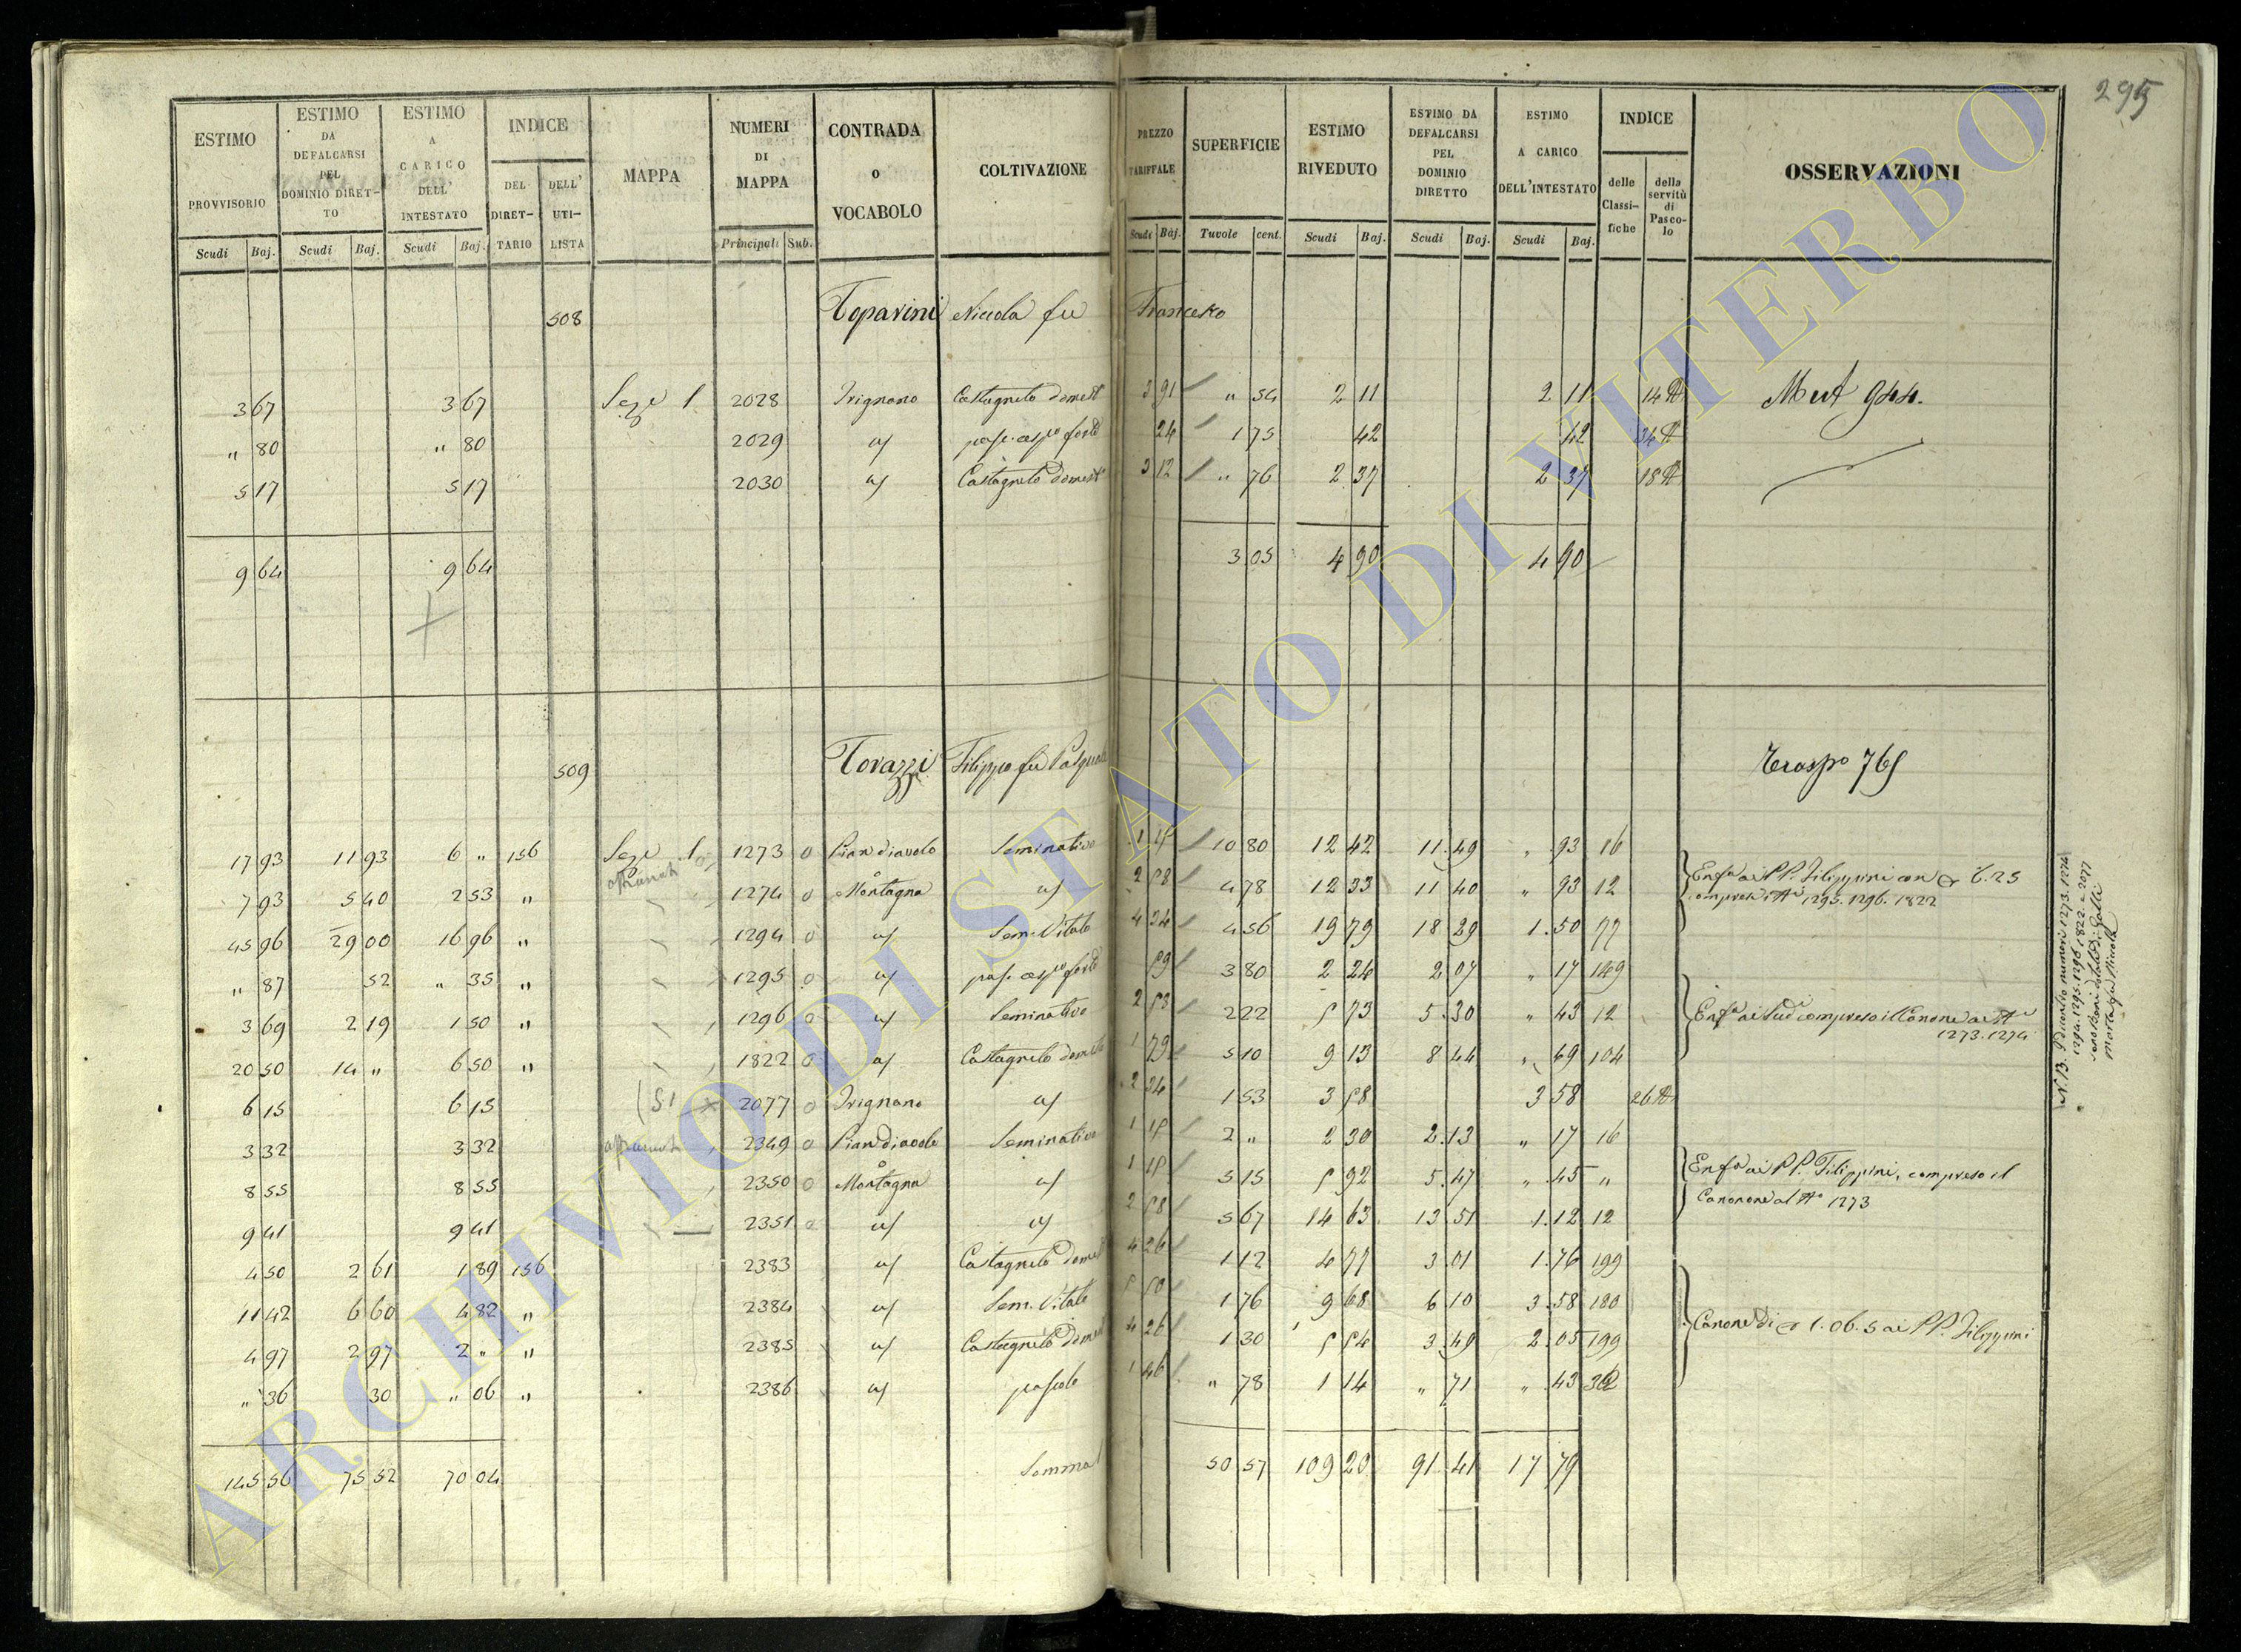 295
ESTIMO PROVVISORIO | ESTIMO DA DEFALCARSI PEL DOMINIO DIRET-TO | ESTIMO A CARICO DELL' INTESTATO | INDICE DEL DIRET-TARIO | DELL' UTI-LISTA | MAPPA | NUMERI DI MAPPA | CONTRADA O VOCABOLO | COLTIVAZIONE | PREZZO TARIFFALE | SUPERFICIE | ESTIMO RIVEDUTO | ESTIMO DA DEFALCARSI PEL DOMINIO DIRETTO | ESTIMO A CARICO DELL'INTESTATO | INDICE delle Classi-fiche | della servitù di Pasco-lo | OSSERVAZIONI
Scudi Baj. | Scudi Baj. | Scudi Baj. | Principali Sub. | Scudi Baj. | Tavole cent. | Scudi Baj. | Scudi Baj. | Scudi Baj.
508 Toparini Niccola fu Francesco
3 67 | 3 67 | Seze 1 | 2028 | Trignano | Castagneto domest | 3 91 | " 54 | 2 11 | 2 11 | 14 | 944.
" 80 | " 80 | 2029 | 24 | 1 75 | 42 | 42 | 34
5 17 | 5 17 | 2030 | Castagneto domest | 3 12 | " 76 | 2 37 | 2 37 | 18
9 64 | 9 64 | 3 05 | 4 90 | 4 90
509 Torazzi Filippo fu Pasquale | 769
17 93 | 11 93 | 6 " | 156 | Seze 1 | 1273 o | Pian diavolo | Seminativo | 10 80 | 12 42 | 11.49 | " 93 | 16
7 93 | 5 40 | 2 53 | " | 1274 o | Montagna | 2 58 | 4 78 | 12 33 | 11 40 | " 93 | 12 | Enfa ai PP. Filippini con
45 96 | 29 00 | 16 96 | " | 1294 o | Sem. Vitato | 4 34 | 4 56 | 19 79 | 18.29 | 1.50 | 77 | 1295. 1296. 1822
" 87 | 52 | " 35 | " | 1295 o | 59 | 3 80 | 2 24 | 2 07 | " 17 | 149
3 69 | 2 19 | 1 50 | " | 1296 o | Seminativo | 2 58 | 2 22 | 5 73 | 5.30 | " 43 | 12 | compreso il Canone ai
1273. 1274
20 50 | 14 " | 6 50 | " | 1822 o | Castagneto domesto | 1 79 | 5 10 | 9 13 | 8 44 | " 69 | 104
6 15 | 6 15 | 2077 o | Trignano | 2 34 | 1 53 | 3 58 | 3 58 | 26
3 32 | 3 32 | 2349 o | Pian diavolo | Seminativo | 1 15 | 2 " | 2 30 | 2.13 | " 17 | 16
8 55 | 8 55 | 2350 o | Montagna | 1 15 | 5 15 | 5 92 | 5.47 | " 45 | " | Enfa ai PP. Filippini, compreso il
9 41 | 9 41 | 2351 o | 2 58 | 5 67 | 14 63 | 13 51 | 1.12 | 12 | Canone al 1273
4 50 | 2 61 | 1 89 | 156 | 2383 | Castagneto domest | 4 26 | 1 12 | 4 77 | 3.01 | 1.76 | 199
11 42 | 6 60 | 4 82 | " | 2384 | Sem. Vitato | 5 50 | 1 76 | 9 68 | 6.10 | 3.58 | 180
4 97 | 2 97 | 2 " | " | 2385 | Castagneto domest | 4 26 | 1 30 | 5 54 | 3.49 | 2.05 | 199 | Canone di 1.06.5 ai PP. Filippini
" 36 | 30 | " 06 | " | 2386 | pascolo | 1 46 | " 78 | 1 14 | " 71 | " 43
145 56 | 75 52 | 70 04 | Somma | 50 57 | 109 20 | 91.41 | 17 79
N.B. numeri 1273. 1274
1294. 1295. 1296. 1822. e 2077
ARCHIVIO DI STATO DI VITERBO